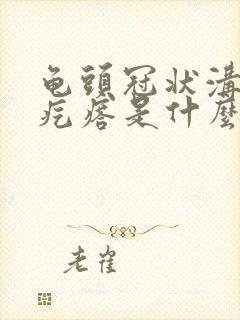 龟頭冠状溝
疙瘩是什麼
老雀